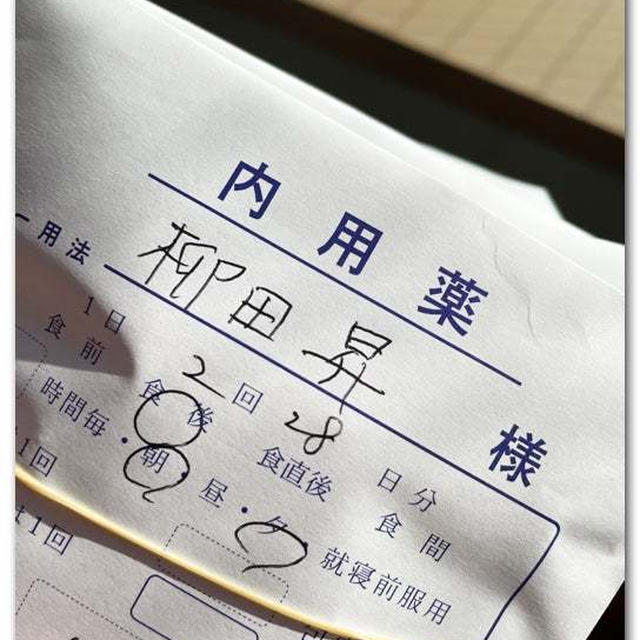 内用薬
柳田昇 様
用法
1日 2回 28日分
食前 食後 食直後 食間
時間毎・朝・昼・夕 就寝前服用
1回
1回